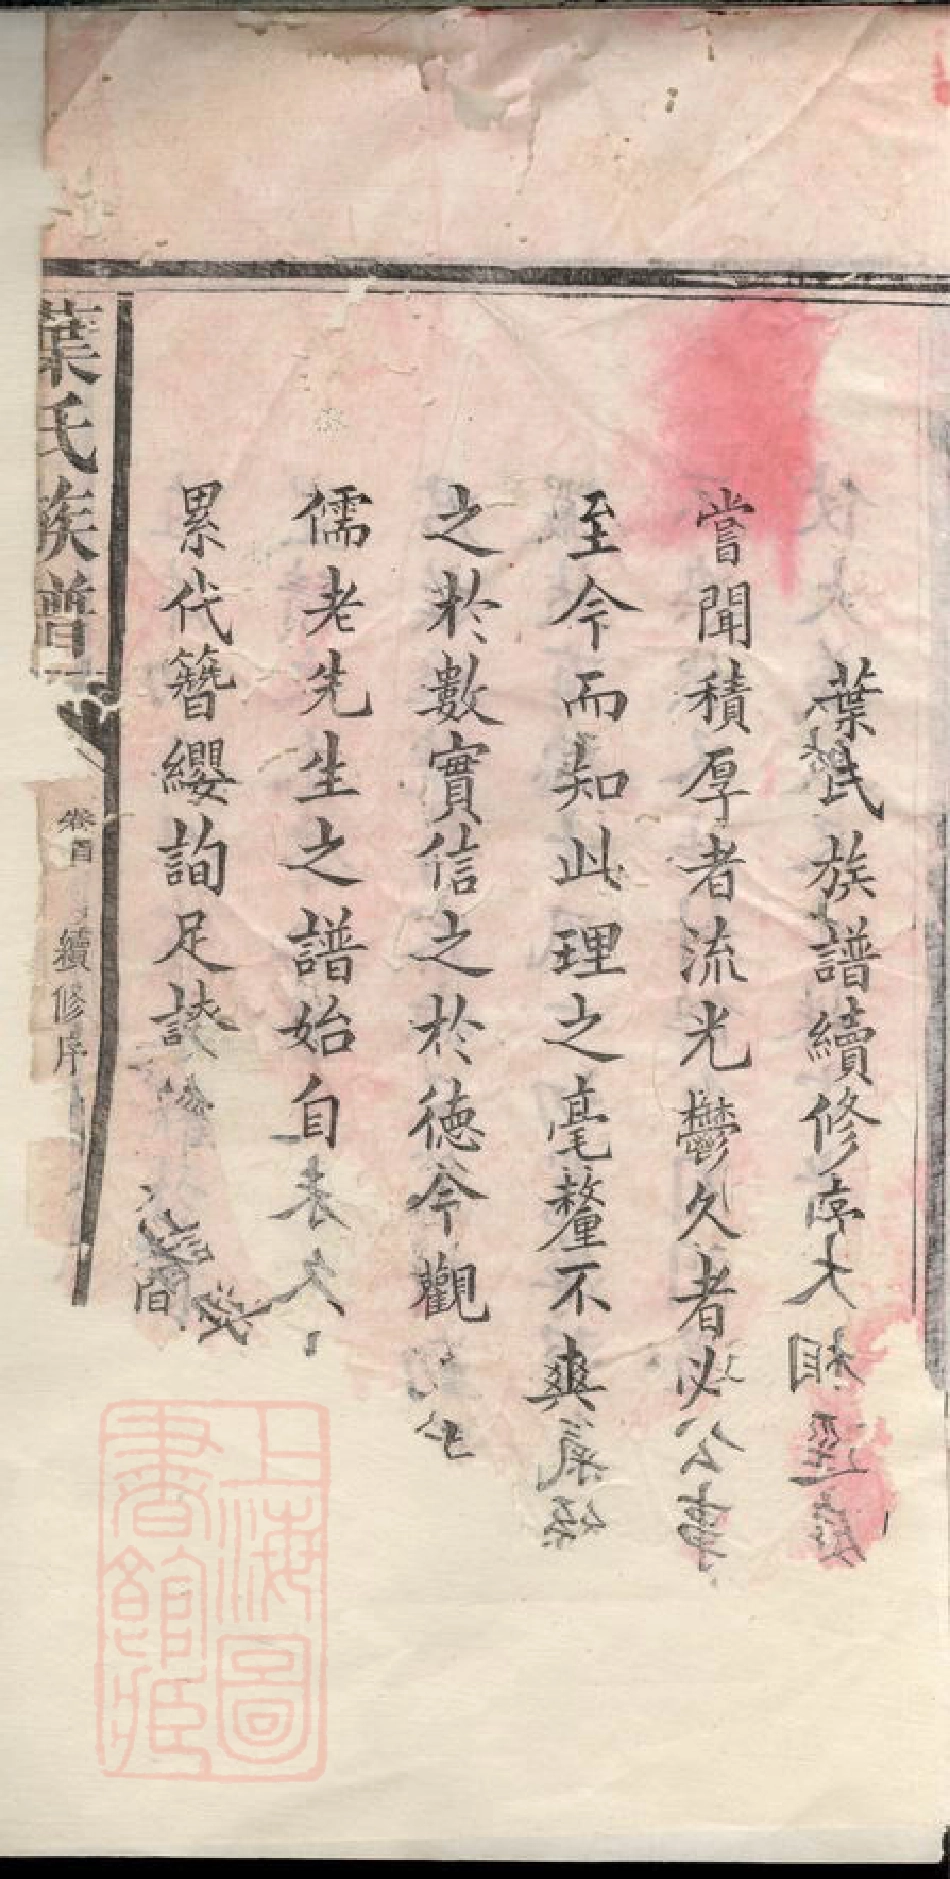 葉氏族譜續修序
嘗聞積厚者流光鬱久者必
至今而知此理之毫釐不爽
之於數實信之於德今觀
儒老先生之譜始自
累代簪纓詢足誇
葉氏族譜
卷首
續修序
上海圖
書館藏